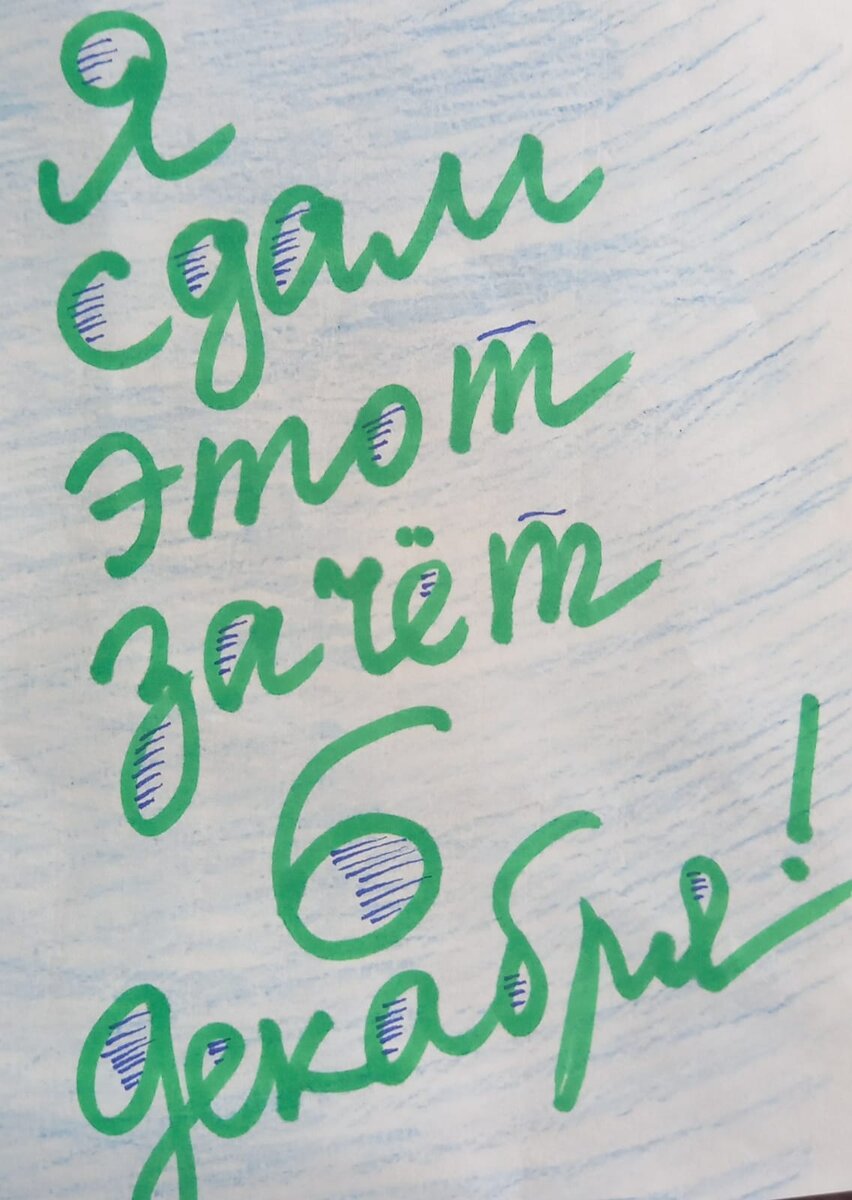 Я
сдам
этот
зачёт
6
декабря!